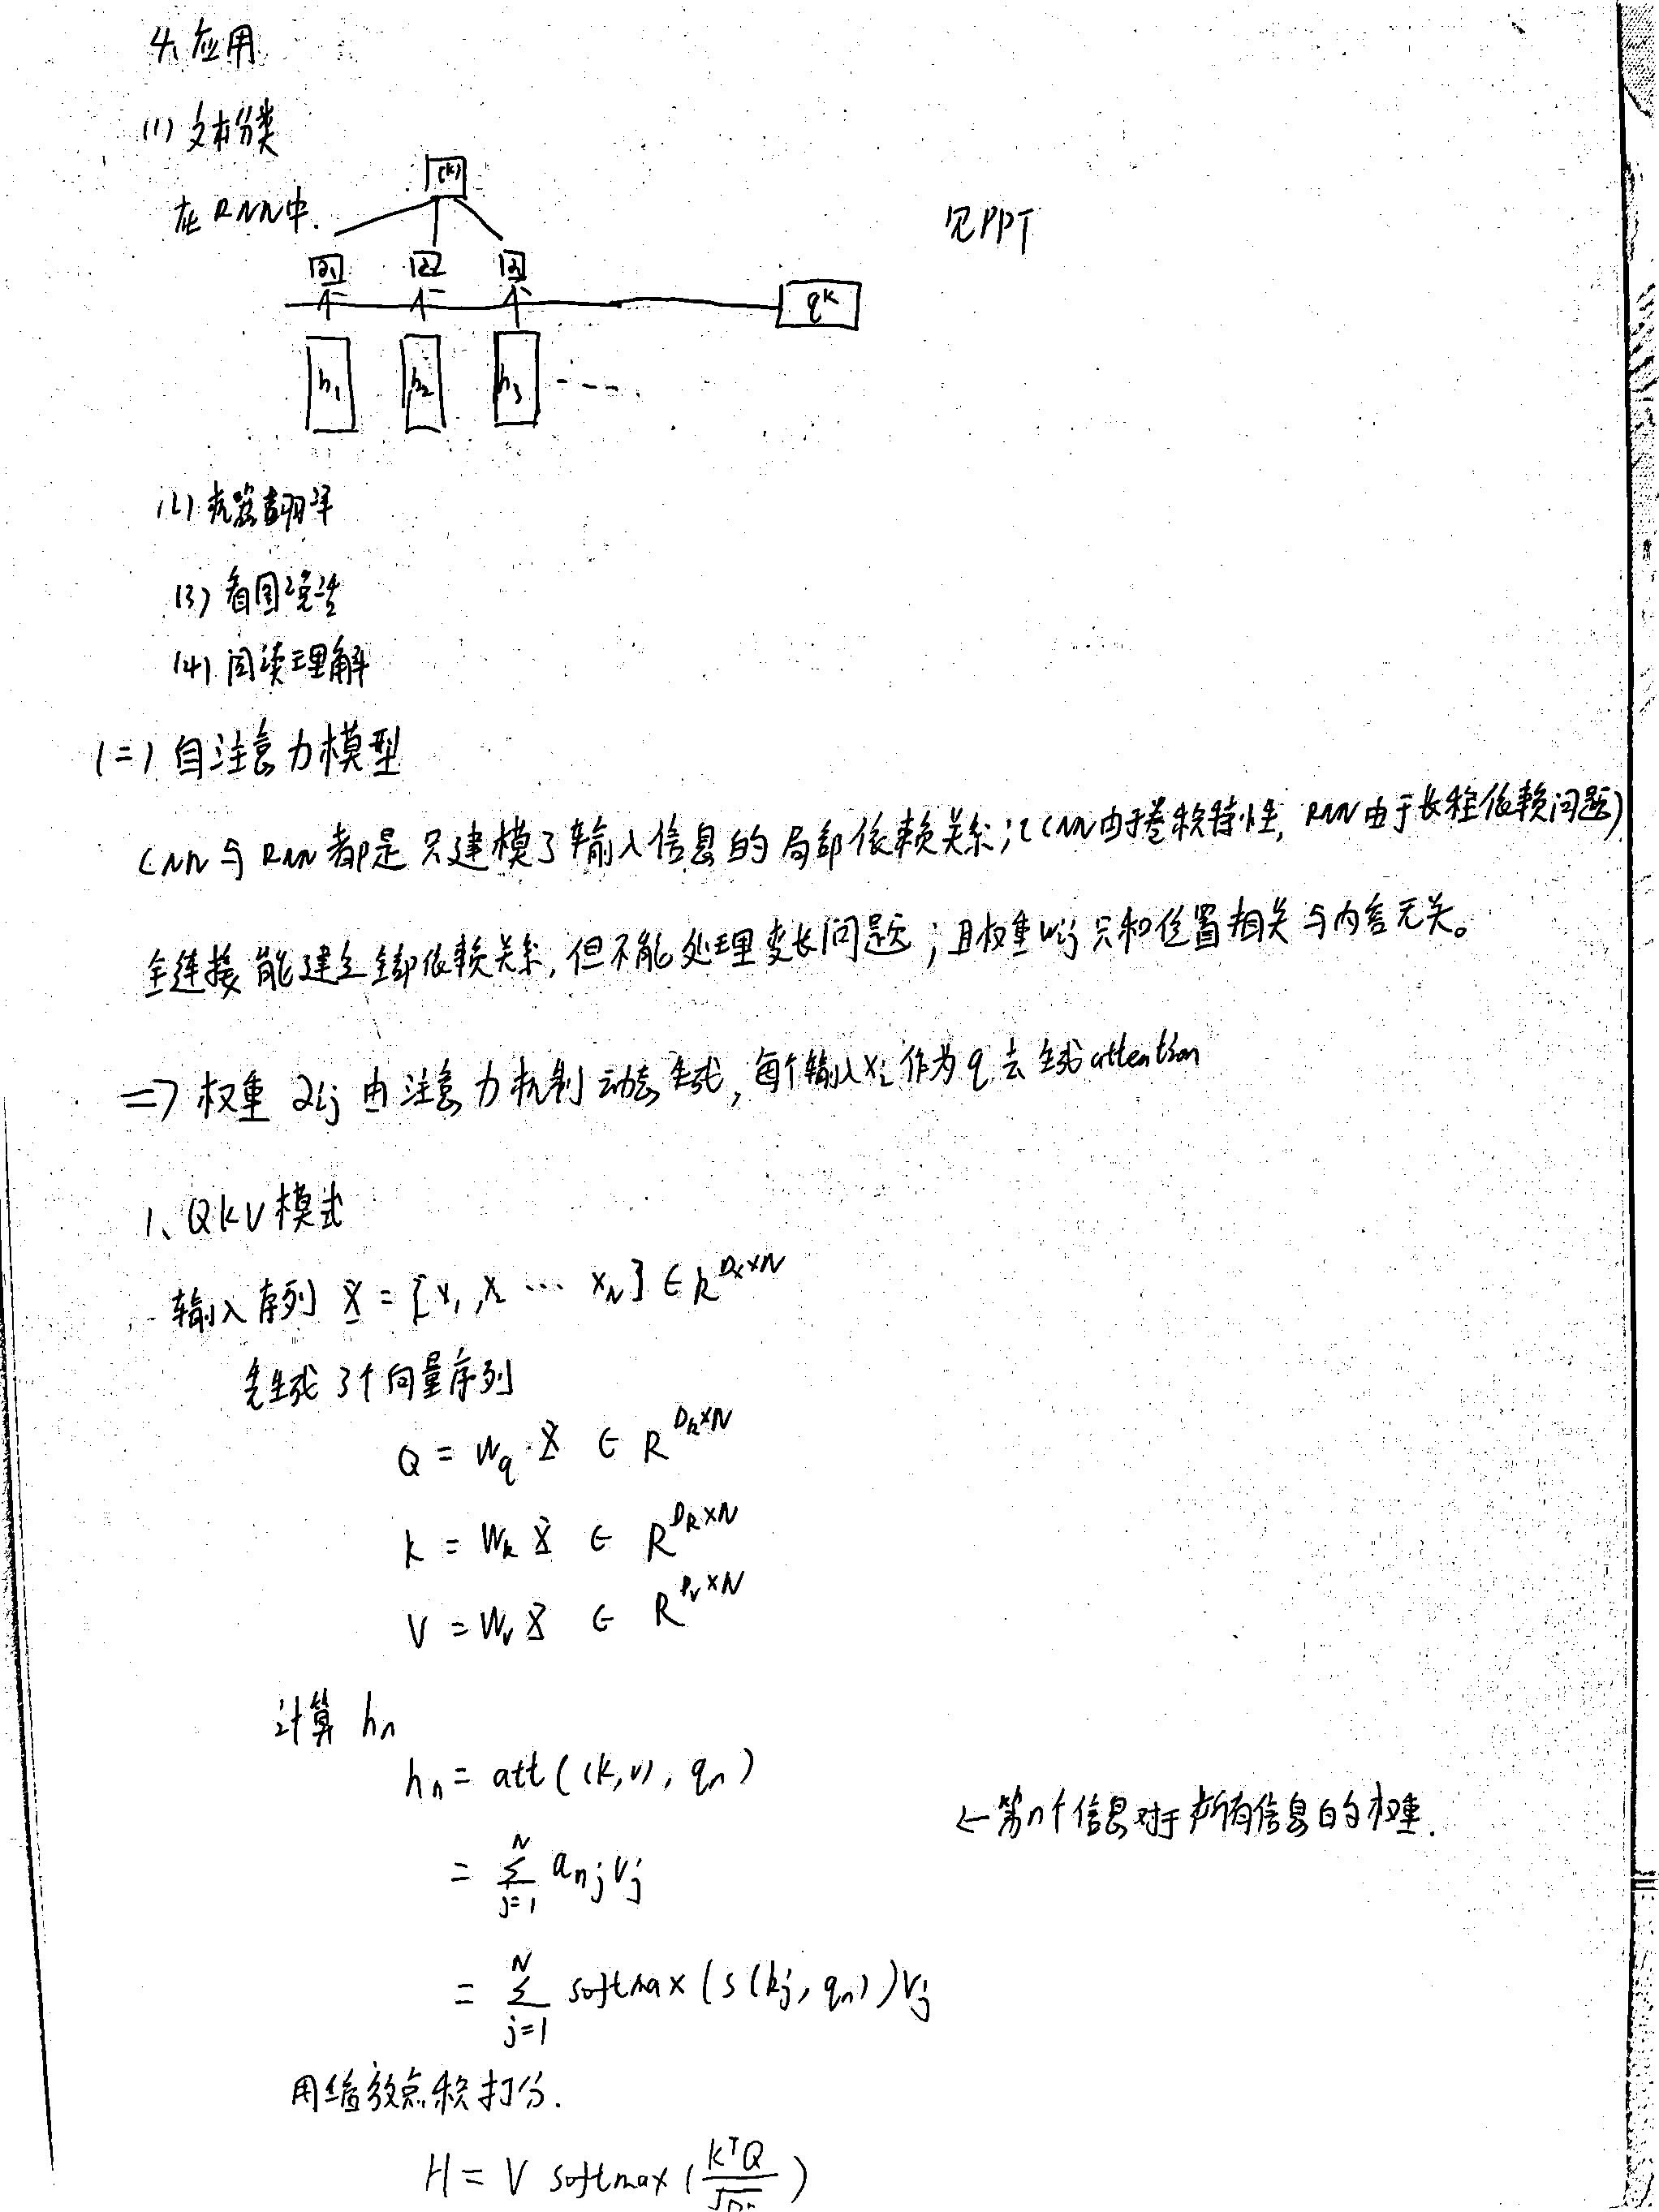 4、应用
(1) 文本分类
(k)
在RNN中.
见PPT
α1 α2 α3
q^k
h1 h2 h3 ----
(2) 机器翻译
(3) 看图说话
(4) 阅读理解
(二) 自注意力模型
CNN与RNN都是只建模了输入信息的局部依赖关系;(CNN由于卷积特性, RNN由于长程依赖问题)
全连接能建立全部依赖关系, 但不能处理变长问题; 且权重wij只和位置相关与内容无关。
=> 权重 αij 由注意力机制动态生成, 每个输入xi作为q去生成attention
1、QKV模式
输入序列 X = [x1, x2 ··· xN] ∈ R^{Dx×N}
先生成3个向量序列
Q = Wq·X ∈ R^{Dk×N}
K = Wk X ∈ R^{Dk×N}
V = Wv X ∈ R^{Dv×N}
计算 hn
hn = att((K,V), qn)
← 第n个信息对于所有信息的权重.
= Σ_{j=1}^{N} anj vj
= Σ_{j=1}^{N} softmax(s(kj, qn))vj
用缩放点积打分.
H = V softmax(K^T Q / √Dk)